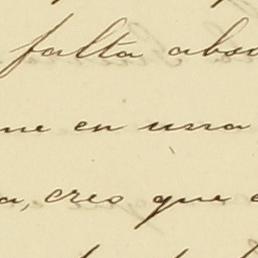 falta abso
ne en una
a, creo que